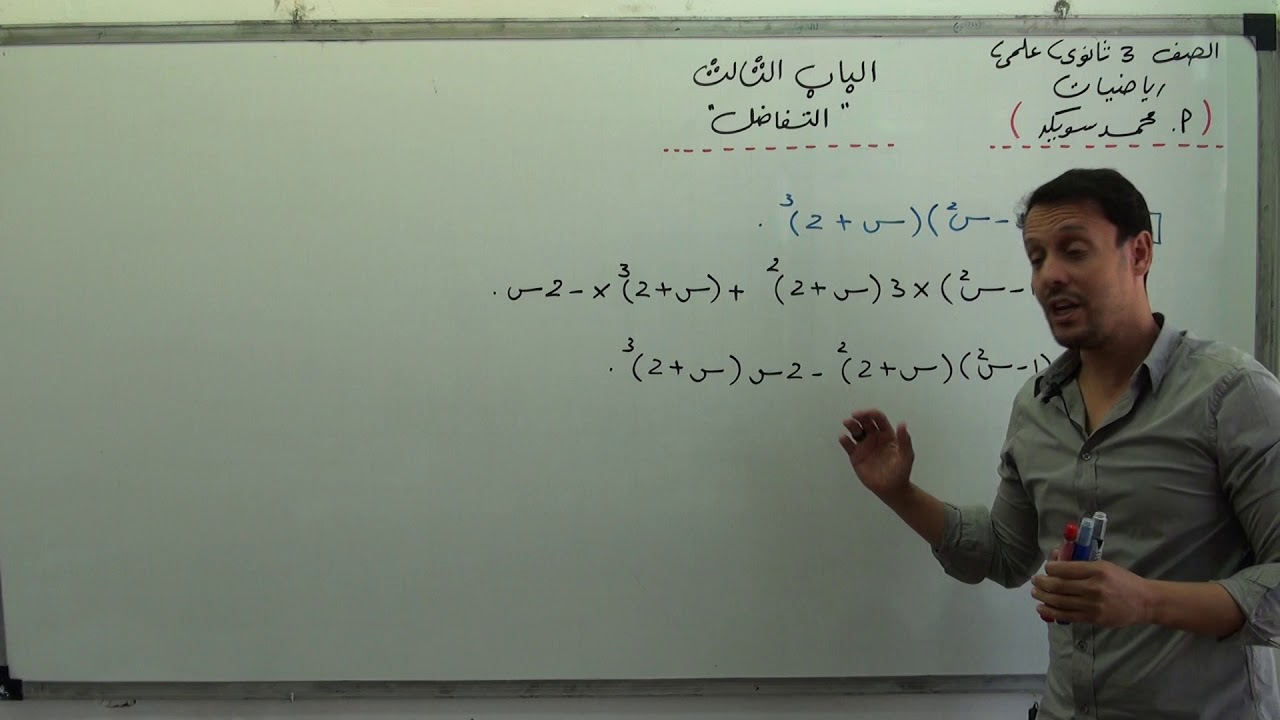 الصف 3 ثانوي علمي
رياضيات
(أ. محمد سويكد)
الباب الثالث
"التفاضل"
- س²)(س + 2)³ .
- س²) × 3(س + 2)² + (س + 2)³ × - 2س .
(1 - س²)(س + 2)² - 2س(س + 2)³ .